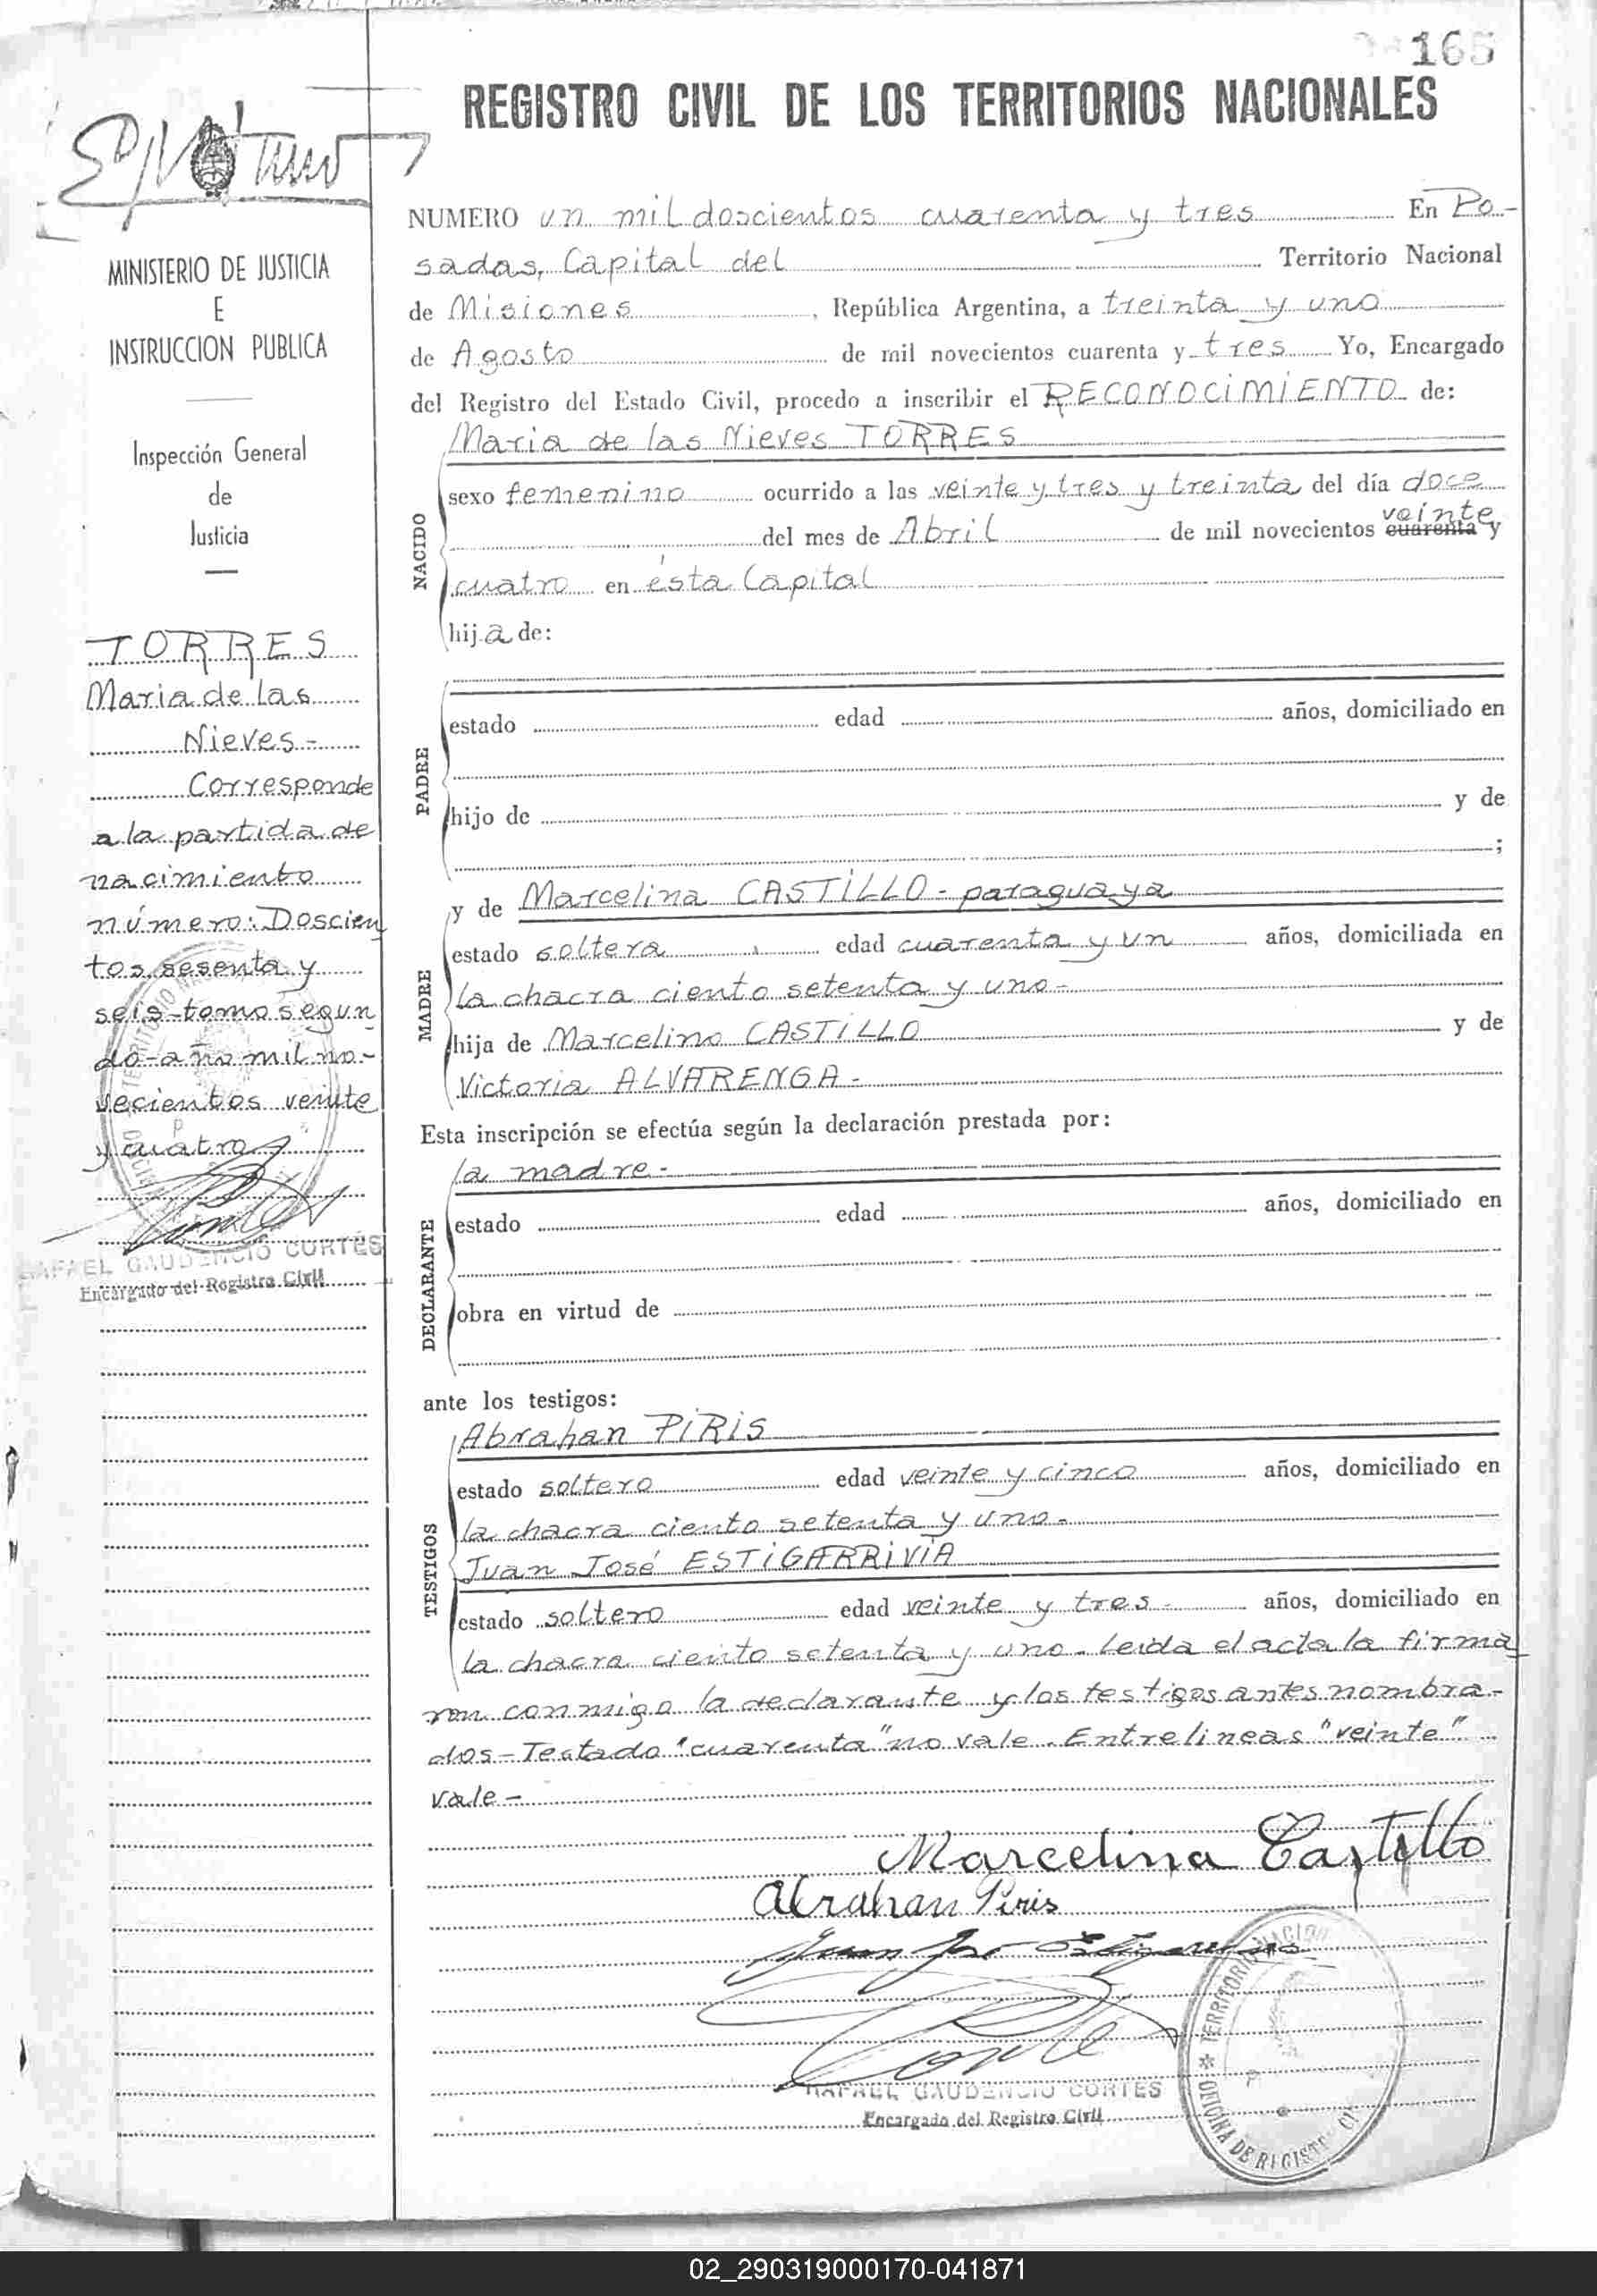 165
REGISTRO CIVIL DE LOS TERRITORIOS NACIONALES
MINISTERIO DE JUSTICIA
E
INSTRUCCION PUBLICA
Inspección General
de
Justicia
TORRES
Maria de las
Nieves-
Corresponde
a la partida de
nacimiento
número: Doscien
tos sesenta y
seis-tomo segun
do-año mil no-
vecientos veinte
y cuatro
RAFAEL GAUDENCIO CORTES
Encargado del Registro Civil
NUMERO un mil doscientos cuarenta y tres En Po-
sadas, Capital del Territorio Nacional
de Misiones, República Argentina, a treinta y uno
de Agosto de mil novecientos cuarenta y tres Yo, Encargado
del Registro del Estado Civil, procedo a inscribir el RECONOCIMIENTO de:
NACIDO
Maria de las Nieves TORRES
sexo femenino ocurrido a las veinte y tres y treinta del día doce
veinte
del mes de Abril de mil novecientos cuarenta y
cuatro en ésta Capital
hija de:
PADRE
estado edad años, domiciliado en
hijo de y de
;
MADRE
y de Marcelina CASTILLO - paraguaya
estado soltera edad cuarenta y un años, domiciliada en
la chacra ciento setenta y uno-
hija de Marcelino CASTILLO y de
Victoria ALVARENGA-
Esta inscripción se efectúa según la declaración prestada por:
DECLARANTE
la madre-
estado edad años, domiciliado en
obra en virtud de
ante los testigos:
TESTIGOS
Abrahan PIRIS
estado soltero edad veinte y cinco años, domiciliado en
la chacra ciento setenta y uno-
Juan José ESTIGARRIVIA
estado soltero edad veinte y tres- años, domiciliado en
la chacra ciento setenta y uno- Leida el acta la firma
ron conmigo la declarante y los testigos antes nombra-
dos-Testado "cuarenta" no vale. Entrelineas "veinte"
vale-
Marcelina Castillo
Abrahan Piris
RAFAEL GAUDENCIO CORTES
Encargado del Registro Civil
OFICINA DE REGISTRO CI
TERRITORIO NACION
02_290319000170-041871